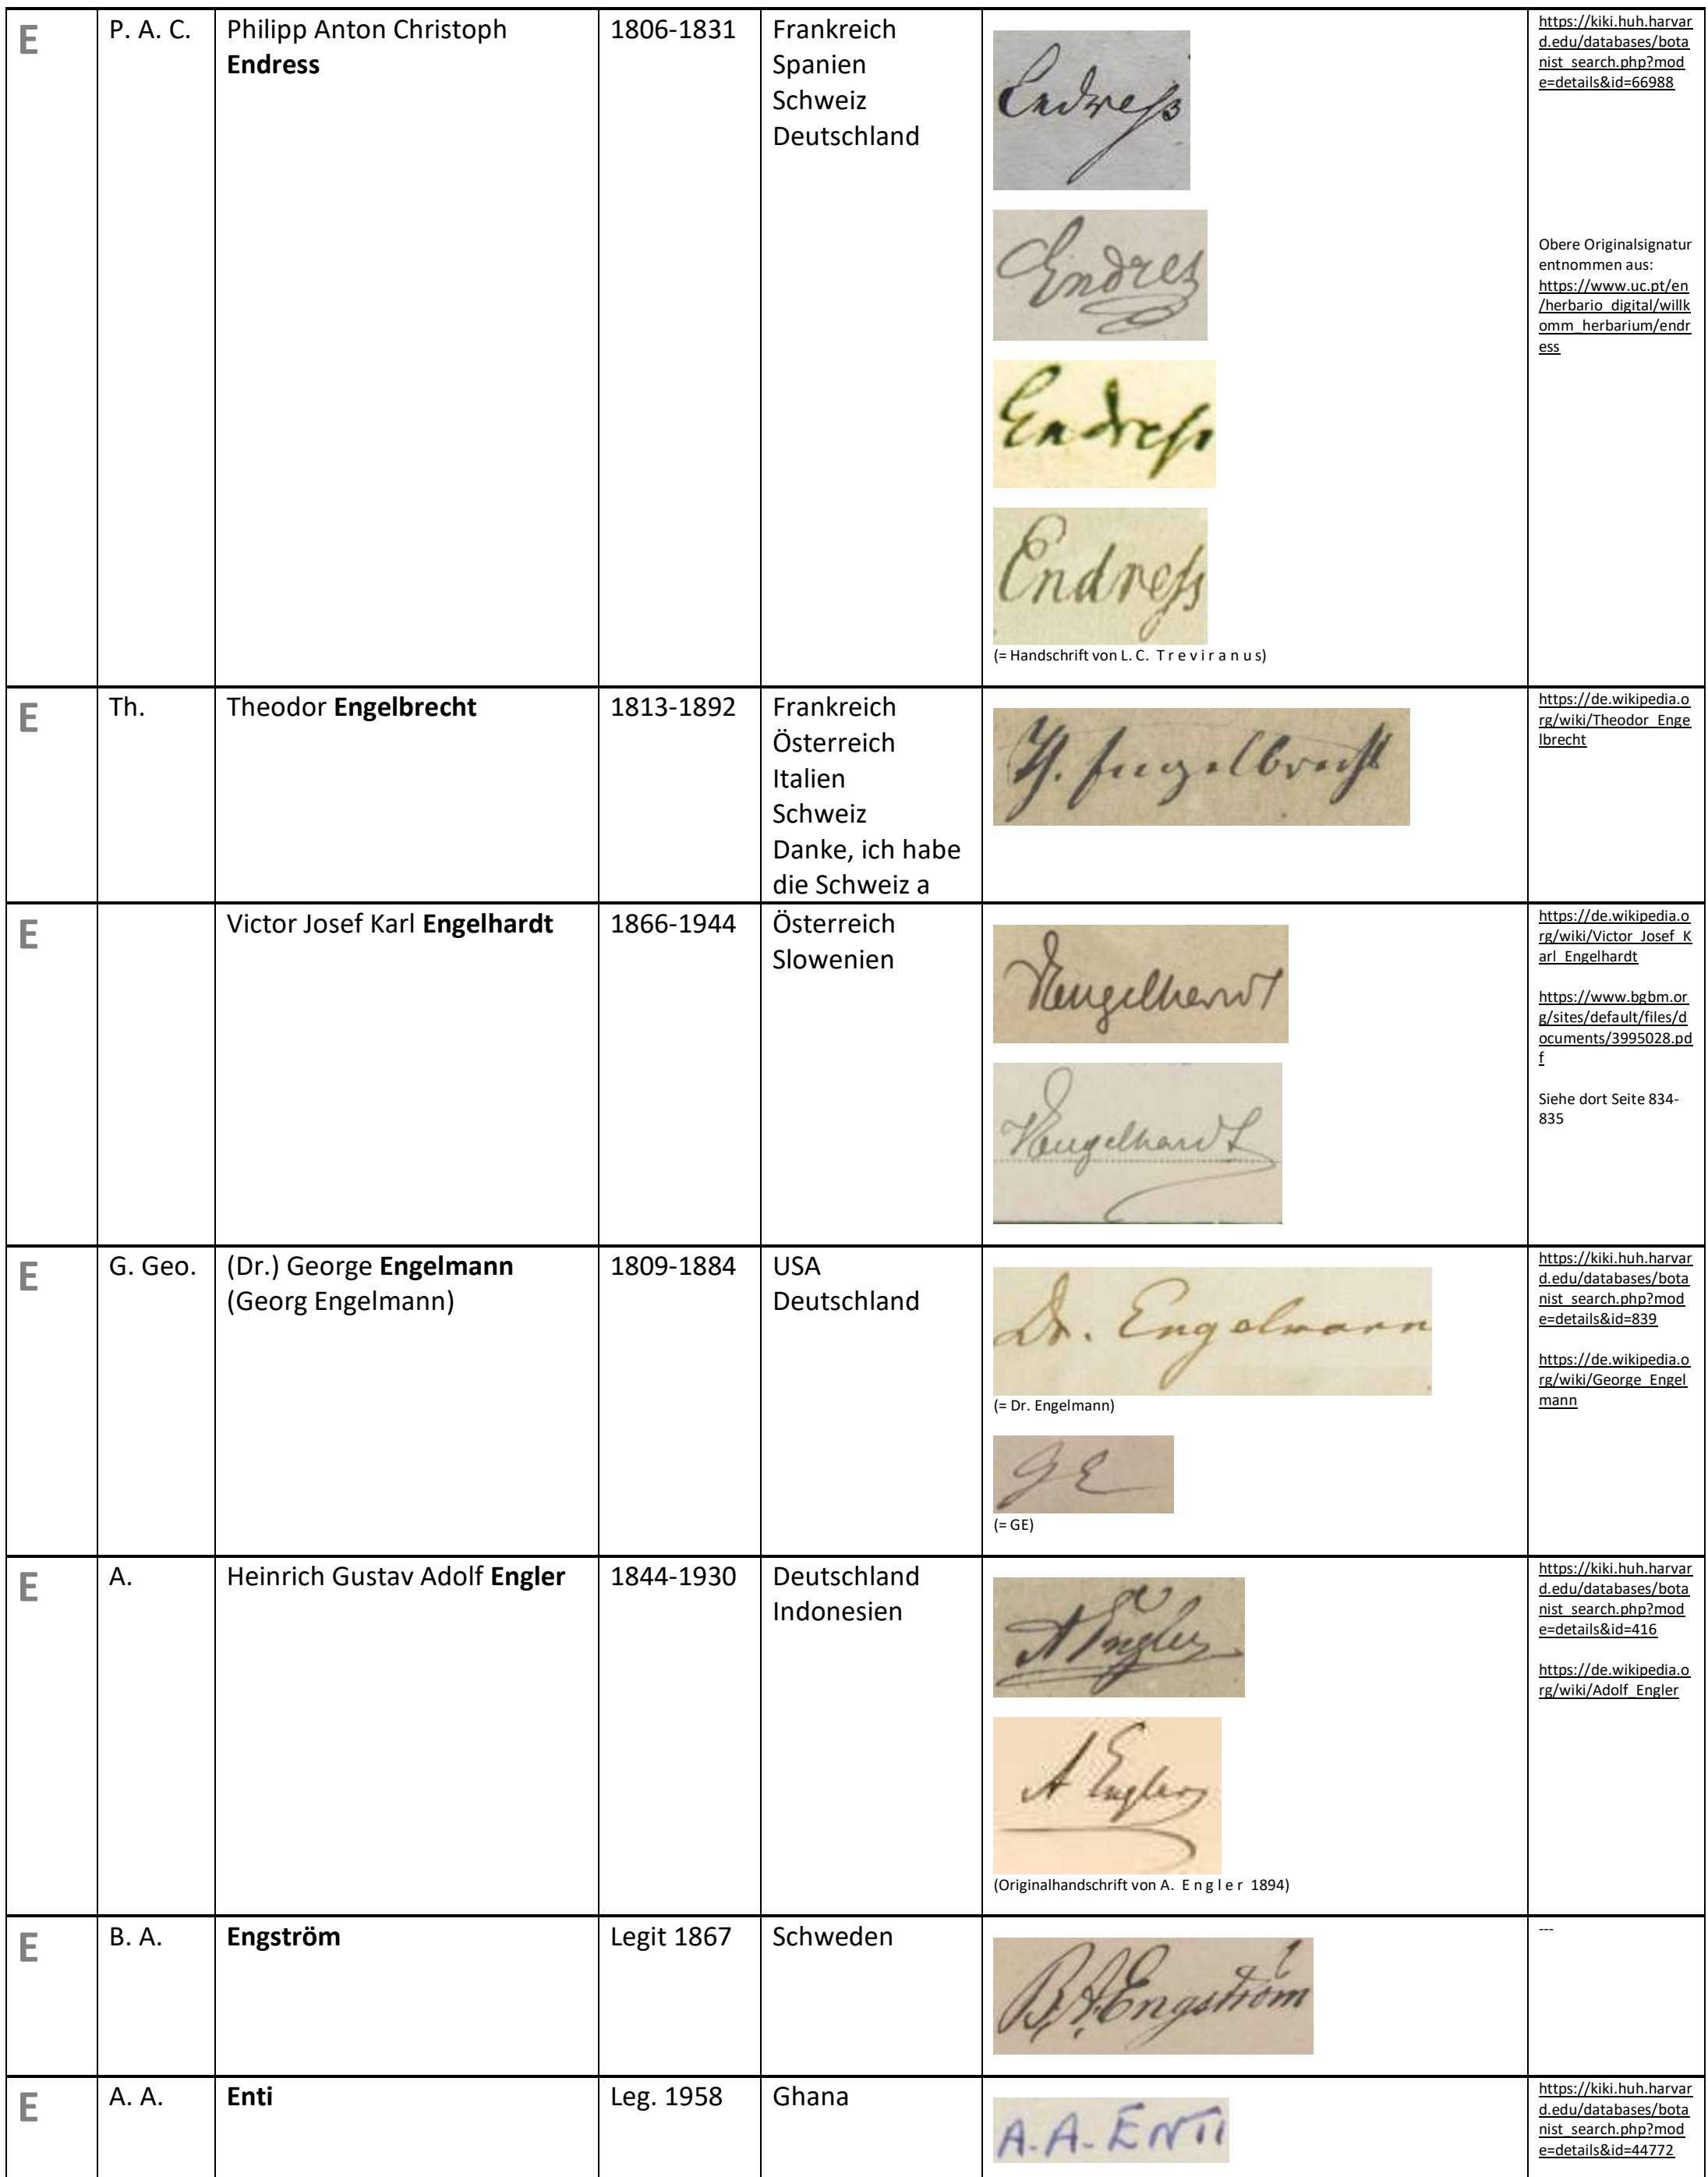 E
P. A. C.
Philipp Anton Christoph
Endress
1806-1831
Frankreich
Spanien
Schweiz
Deutschland
Endreß
Endres
Endreß
Endreß
(= Handschrift von L. C. T r e v i r a n u s)
https://kiki.huh.harvar
d.edu/databases/bota
nist_search.php?mod
e=details&id=66988
Obere Originalsignatur
entnommen aus:
https://www.uc.pt/en
/herbario_digital/willk
omm_herbarium/endr
ess
E
Th.
Theodor Engelbrecht
1813-1892
Frankreich
Österreich
Italien
Schweiz
Danke, ich habe
die Schweiz a
Th. Engelbrecht
https://de.wikipedia.o
rg/wiki/Theodor_Enge
lbrecht
E
Victor Josef Karl Engelhardt
1866-1944
Österreich
Slowenien
VEngelhardt
VEngelhardt
https://de.wikipedia.o
rg/wiki/Victor_Josef_K
arl_Engelhardt
https://www.bgbm.or
g/sites/default/files/d
ocuments/3995028.pd
f
Siehe dort Seite 834-
835
E
G. Geo.
(Dr.) George Engelmann
(Georg Engelmann)
1809-1884
USA
Deutschland
Dr. Engelmann
(= Dr. Engelmann)
GE
(= GE)
https://kiki.huh.harvar
d.edu/databases/bota
nist_search.php?mod
e=details&id=839
https://de.wikipedia.o
rg/wiki/George_Engel
mann
E
A.
Heinrich Gustav Adolf Engler
1844-1930
Deutschland
Indonesien
A Engler
A Engler
(Originalhandschrift von A. E n g l e r 1894)
https://kiki.huh.harvar
d.edu/databases/bota
nist_search.php?mod
e=details&id=416
https://de.wikipedia.o
rg/wiki/Adolf_Engler
E
B. A.
Engström
Legit 1867
Schweden
B. A. Engström
---
E
A. A.
Enti
Leg. 1958
Ghana
A. A. ENTI
https://kiki.huh.harvar
d.edu/databases/bota
nist_search.php?mod
e=details&id=44772